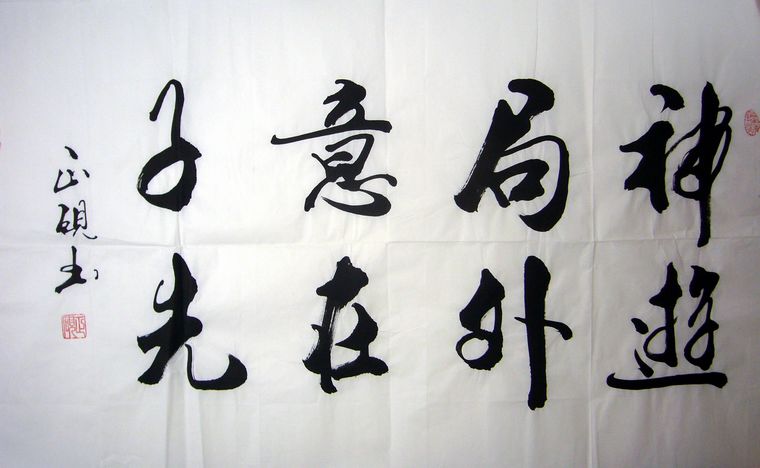 神遊
局外
意在
子先
正硯书